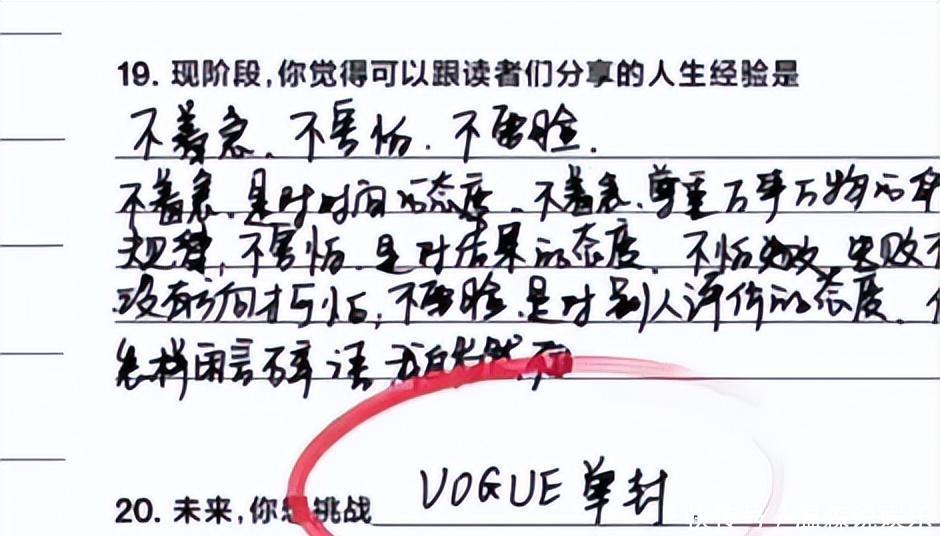 19. 现阶段,你觉得可以跟读者们分享的人生经验是
不着急、不害怕.不要脸.
不着急,是对时间的态度.不着急,尊重万事万物的
规律,不害怕.是对结果的态度.不怕失败,失败不
没有方向才可怕,不要脸.是对别人评价的态度.
怎样闲言碎语 我自岿然不
20. 未来,你想挑战 VOGUE 单封